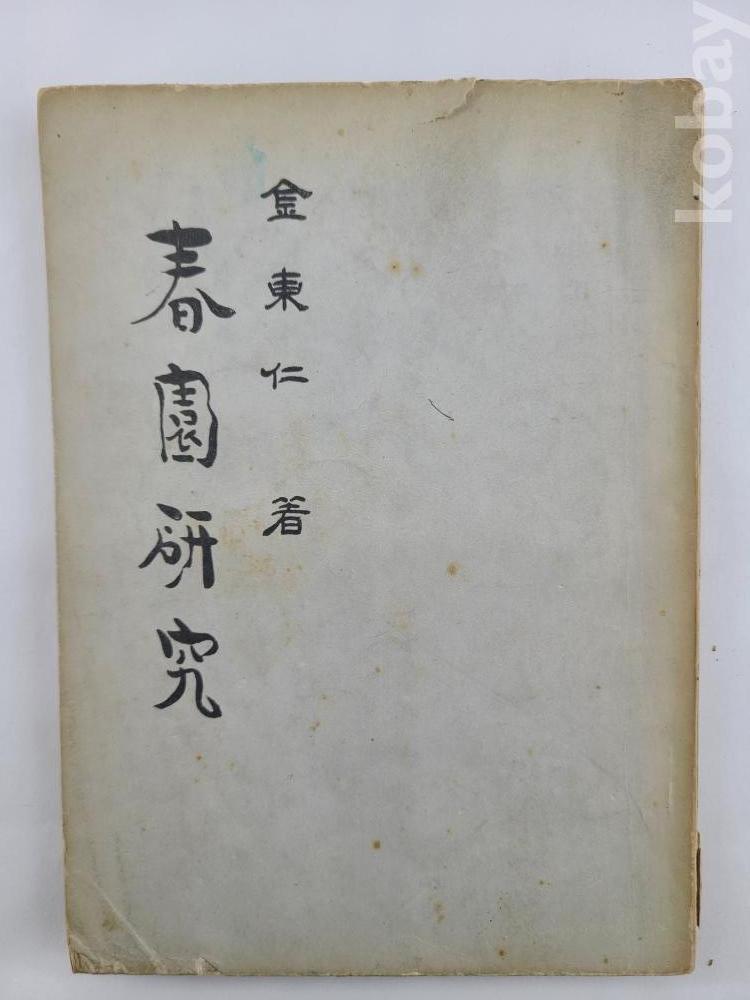 金東仁 着
春園硏究
kobay